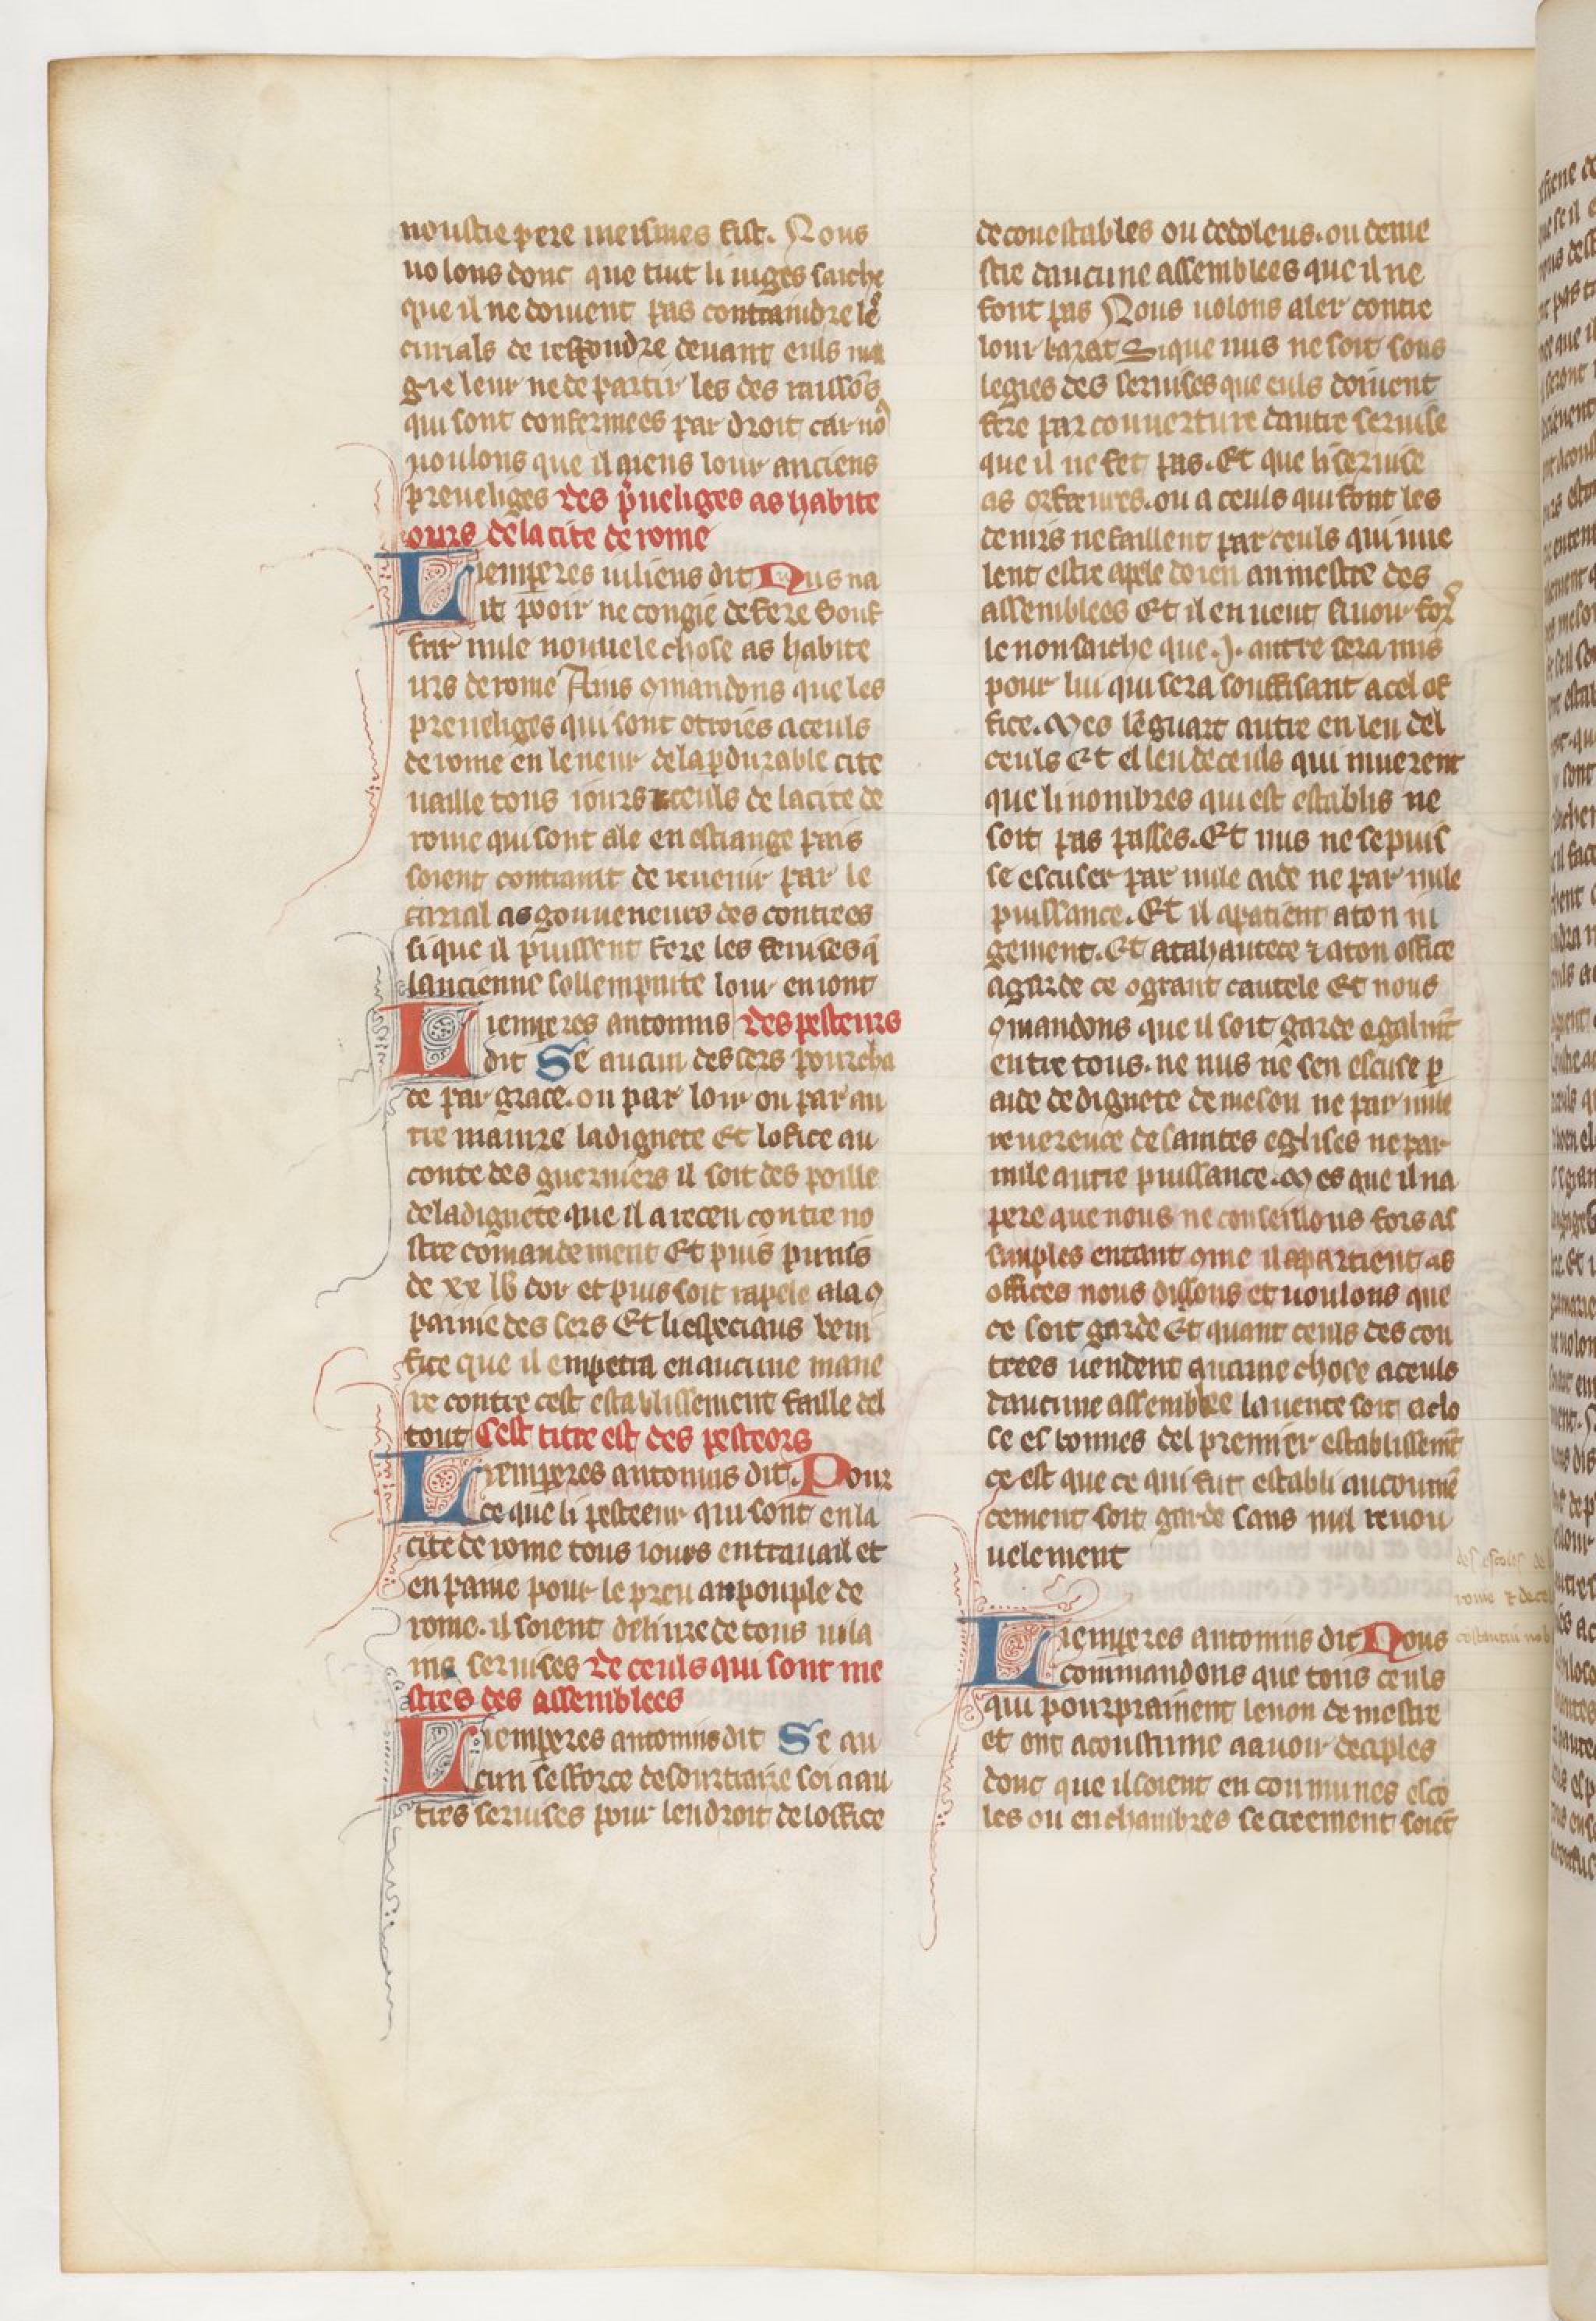 noustre pere meismes fist. Nous
uolons donc que tuit li iuges saiche
que il ne doiuent pas contraindre les
curials de respondre deuant euls mau
gre leur ne de partir les des raisons
qui sont confermees par droit car nos
uoulons que il aiens lour anciens
preueliges Des preueliges as habite
ours de la cite de rome
Liemperes iuliens dit Nus na
it pooir ne congie de fere souf
frir nule nouuele chose as habite
urs de rome Ains comandons que les
preueliges qui sont otroies a ceuls
de rome en leneur de la pdurable cite
uaille tous iours ceuls de la cite de
rome qui sont ale en estrange pais
soient contraint de reuenir par le
curial as gouueneurs des contrees
si que il puissent fere les seruises q̃
lancienne sollempnite lour enioint
Liemperes antonnis Des pesteurs
dit Se aucun des sers pourcha
ce par grace. ou par lour ou par au
tre maniere la dignete Et lofice au
conte des guerriers il soit des poille
de la dignete que il a receu contre no
stre comandement Et puis punis
de xx lb dor et puis soit rapele a la co
painie des sers Et li especiaus beni
fice que il empetra en aucune mane
re contre cest establissement faille del
tout Cest titre est des pesteors
Liemperes antonnis dit. Pour
ce que li pesteeur qui sont en la
cite de rome tous iours en trauail et
en paine pour le preu au pouple de
rome. il soient deliure de tous uila
ins seruises De ceuls qui sont me
stres des assemblees
Liemperes antonnis dit Se au
cun sefforce de sourtraire soi a au
tres seruises pour lendroit de loffice
de conestables ou de doleus. ou de me
stre daucune assemblees que il ne
font pas Nous uolons aler contre
lour barat Si que nus ne soit sous
legies des seruises que euls doiuent
fere par couuerture dautre seruise
que il ne fet pas. Et que li seruise
as orfeures. ou a ceuls qui font les
denirs ne faillent par ceuls qui uue
lent estre apele doien an mestre des
assemblees Et il en ueut auoir fors
le non saiche que .j. autre sera mis
pour lui qui sera souffisant a cel of
fice. Mes len guart autre en leu del
ceuls Et el leu de ceuls qui muerent
que li nombres qui est establis ne
soit pas passes. Et nus ne se puis
se escuser par nule aide ne par nule
puissance. Et il apatient a ton iu
gement. Et a ta hautece ⁊ a ton office
a garde ce o grant cautele Et nous
comandons que il soit garde egalmt̃
entre tous. ne nus ne sen escuse p
aide de dignete de meson ne par nule
reuerence de saintes eglises ne par
nule autre puissance. Mes que il na
pere que nous ne conseillons fors as
simples entant come il apartient as
offices nous dissons et uoulons que
ce soit garde Et quant ceuls des con
trees uendent aucune chose a ceuls
daucune assemblee la uente soit aclo
se es bonnes del premier establissemt̃
ce est que ce qui fut establi au coumẽ
cement soit garde sans nul renou
uelement
des escoles de
rome ⁊ de
Liemperes antonnis dit Nous
commandons que tous ceuls
qui pourpraınent lenon de mestre
et ont acoustume a auoir deciples
donc que il soient en coumunes esco
les ou en chambres secreement soiet